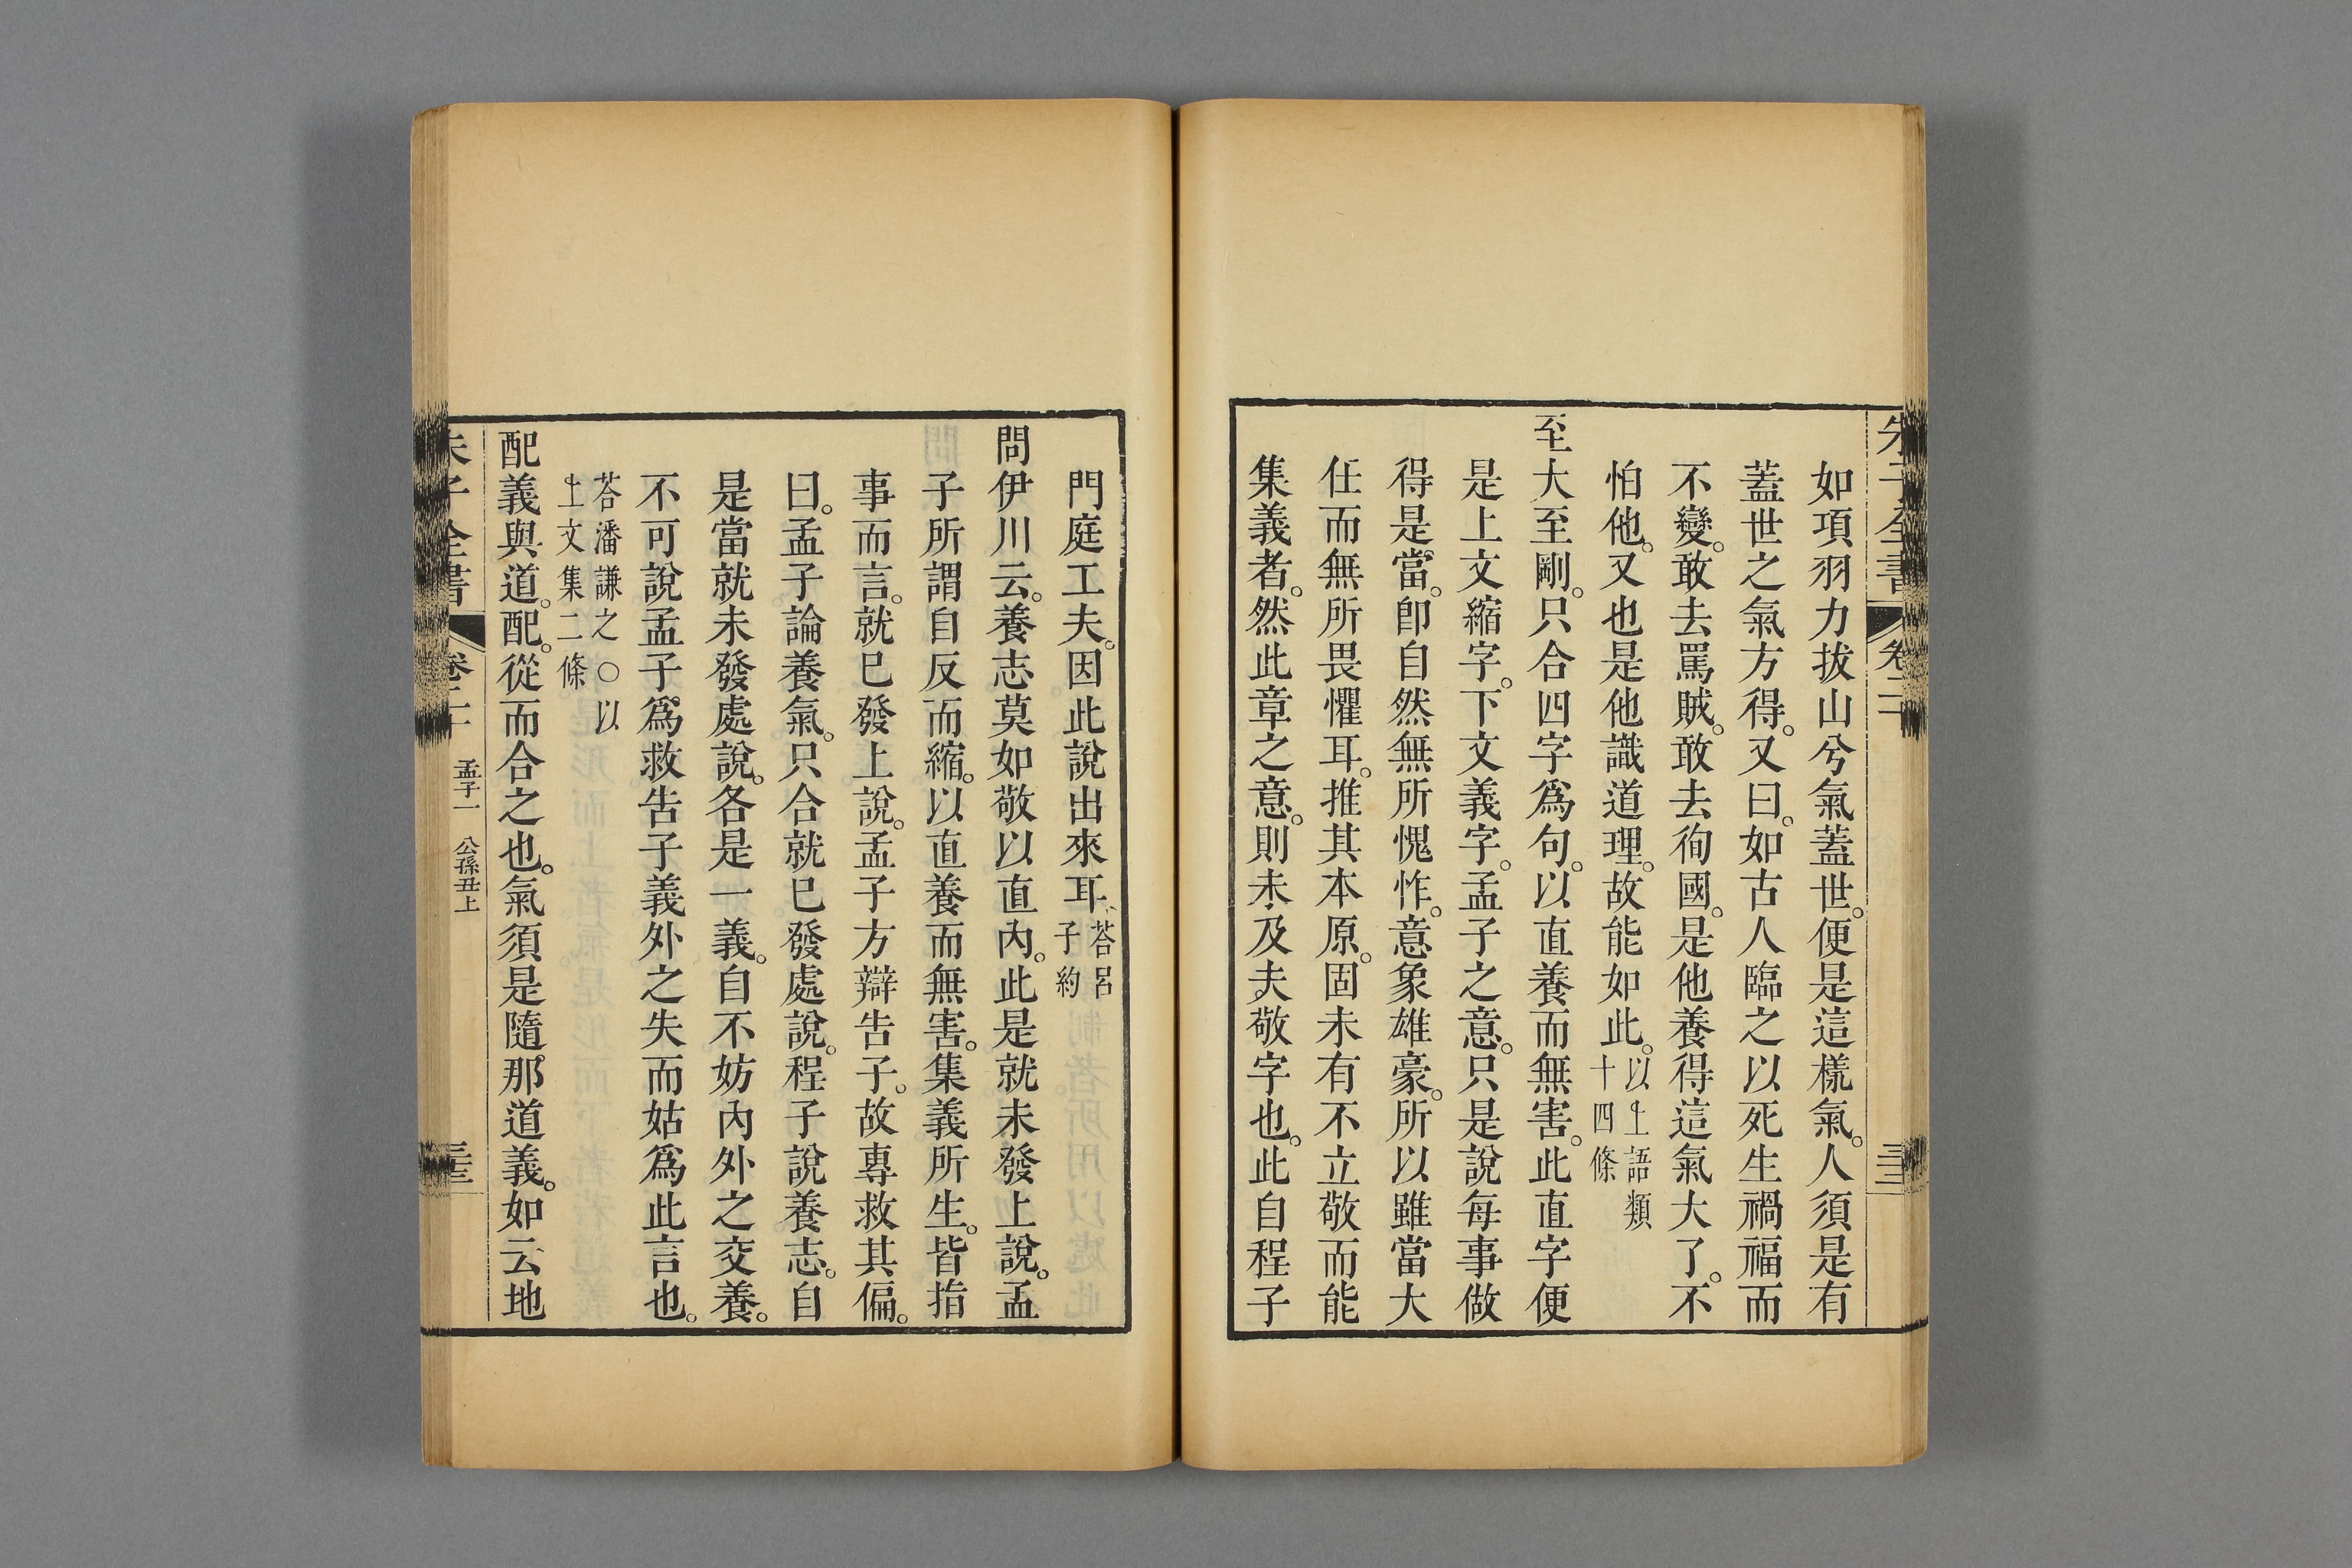 朱子全書 卷二十
如項羽力拔山兮氣蓋世。便是這樣氣。人須是有
蓋世之氣方得。又曰。如古人臨之以死生禍福而
不變。敢去罵賊。敢去徇國。是他養得這氣大了。不
怕他。又也是他識道理。故能如此。以上語類
十四條
至大至剛。只合四字爲句。以直養而無害。此直字便
是上文縮字。下文義字。孟子之意。只是說每事做
得是當。卽自然無所愧怍。意象雄豪。所以雖當大
任而無所畏懼耳。推其本原。固未有不立敬而能
集義者。然此章之意。則未及夫敬字也。此自程子
門庭工夫。因此說出來耳。答呂
子約
問伊川云。養志莫如敬以直內。此是就未發上說。孟
子所謂自反而縮。以直養而無害。集義所生。皆指
事而言。就已發上說。孟子方辯告子。故專救其偏。
曰。孟子論養氣。只合就已發處說。程子說養志。自
是當就未發處說。各是一義。自不妨內外之交養。
不可說孟子爲救告子義外之失而姑爲此言也。
答潘謙之○以
上文集二條
配義與道。配。從而合之也。氣須是隨那道義。如云地
朱子全書 卷二十 孟子一 公孫丑上